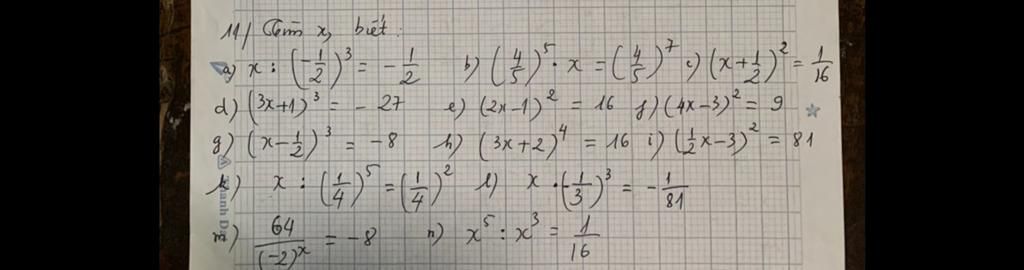 11/ Tìm x, biết:
a) x : (-1/2)^3 = -1/2 b) (4/5)^5 . x = (4/5)^7 c) (x+1/2)^2 = 1/16
d) (3x+1)^3 = -27 e) (2x-1)^2 = 16 f) (4x-3)^2 = 9
g) (x-1/2)^3 = -8 h) (3x+2)^4 = 16 i) (1/2x-3)^2 = 81
k) x : (1/4)^5 = (1/4)^2 l) x . (-1/3)^3 = -1/81
m) 64/(-2)^x = -8 n) x^5 : x^3 = 1/16